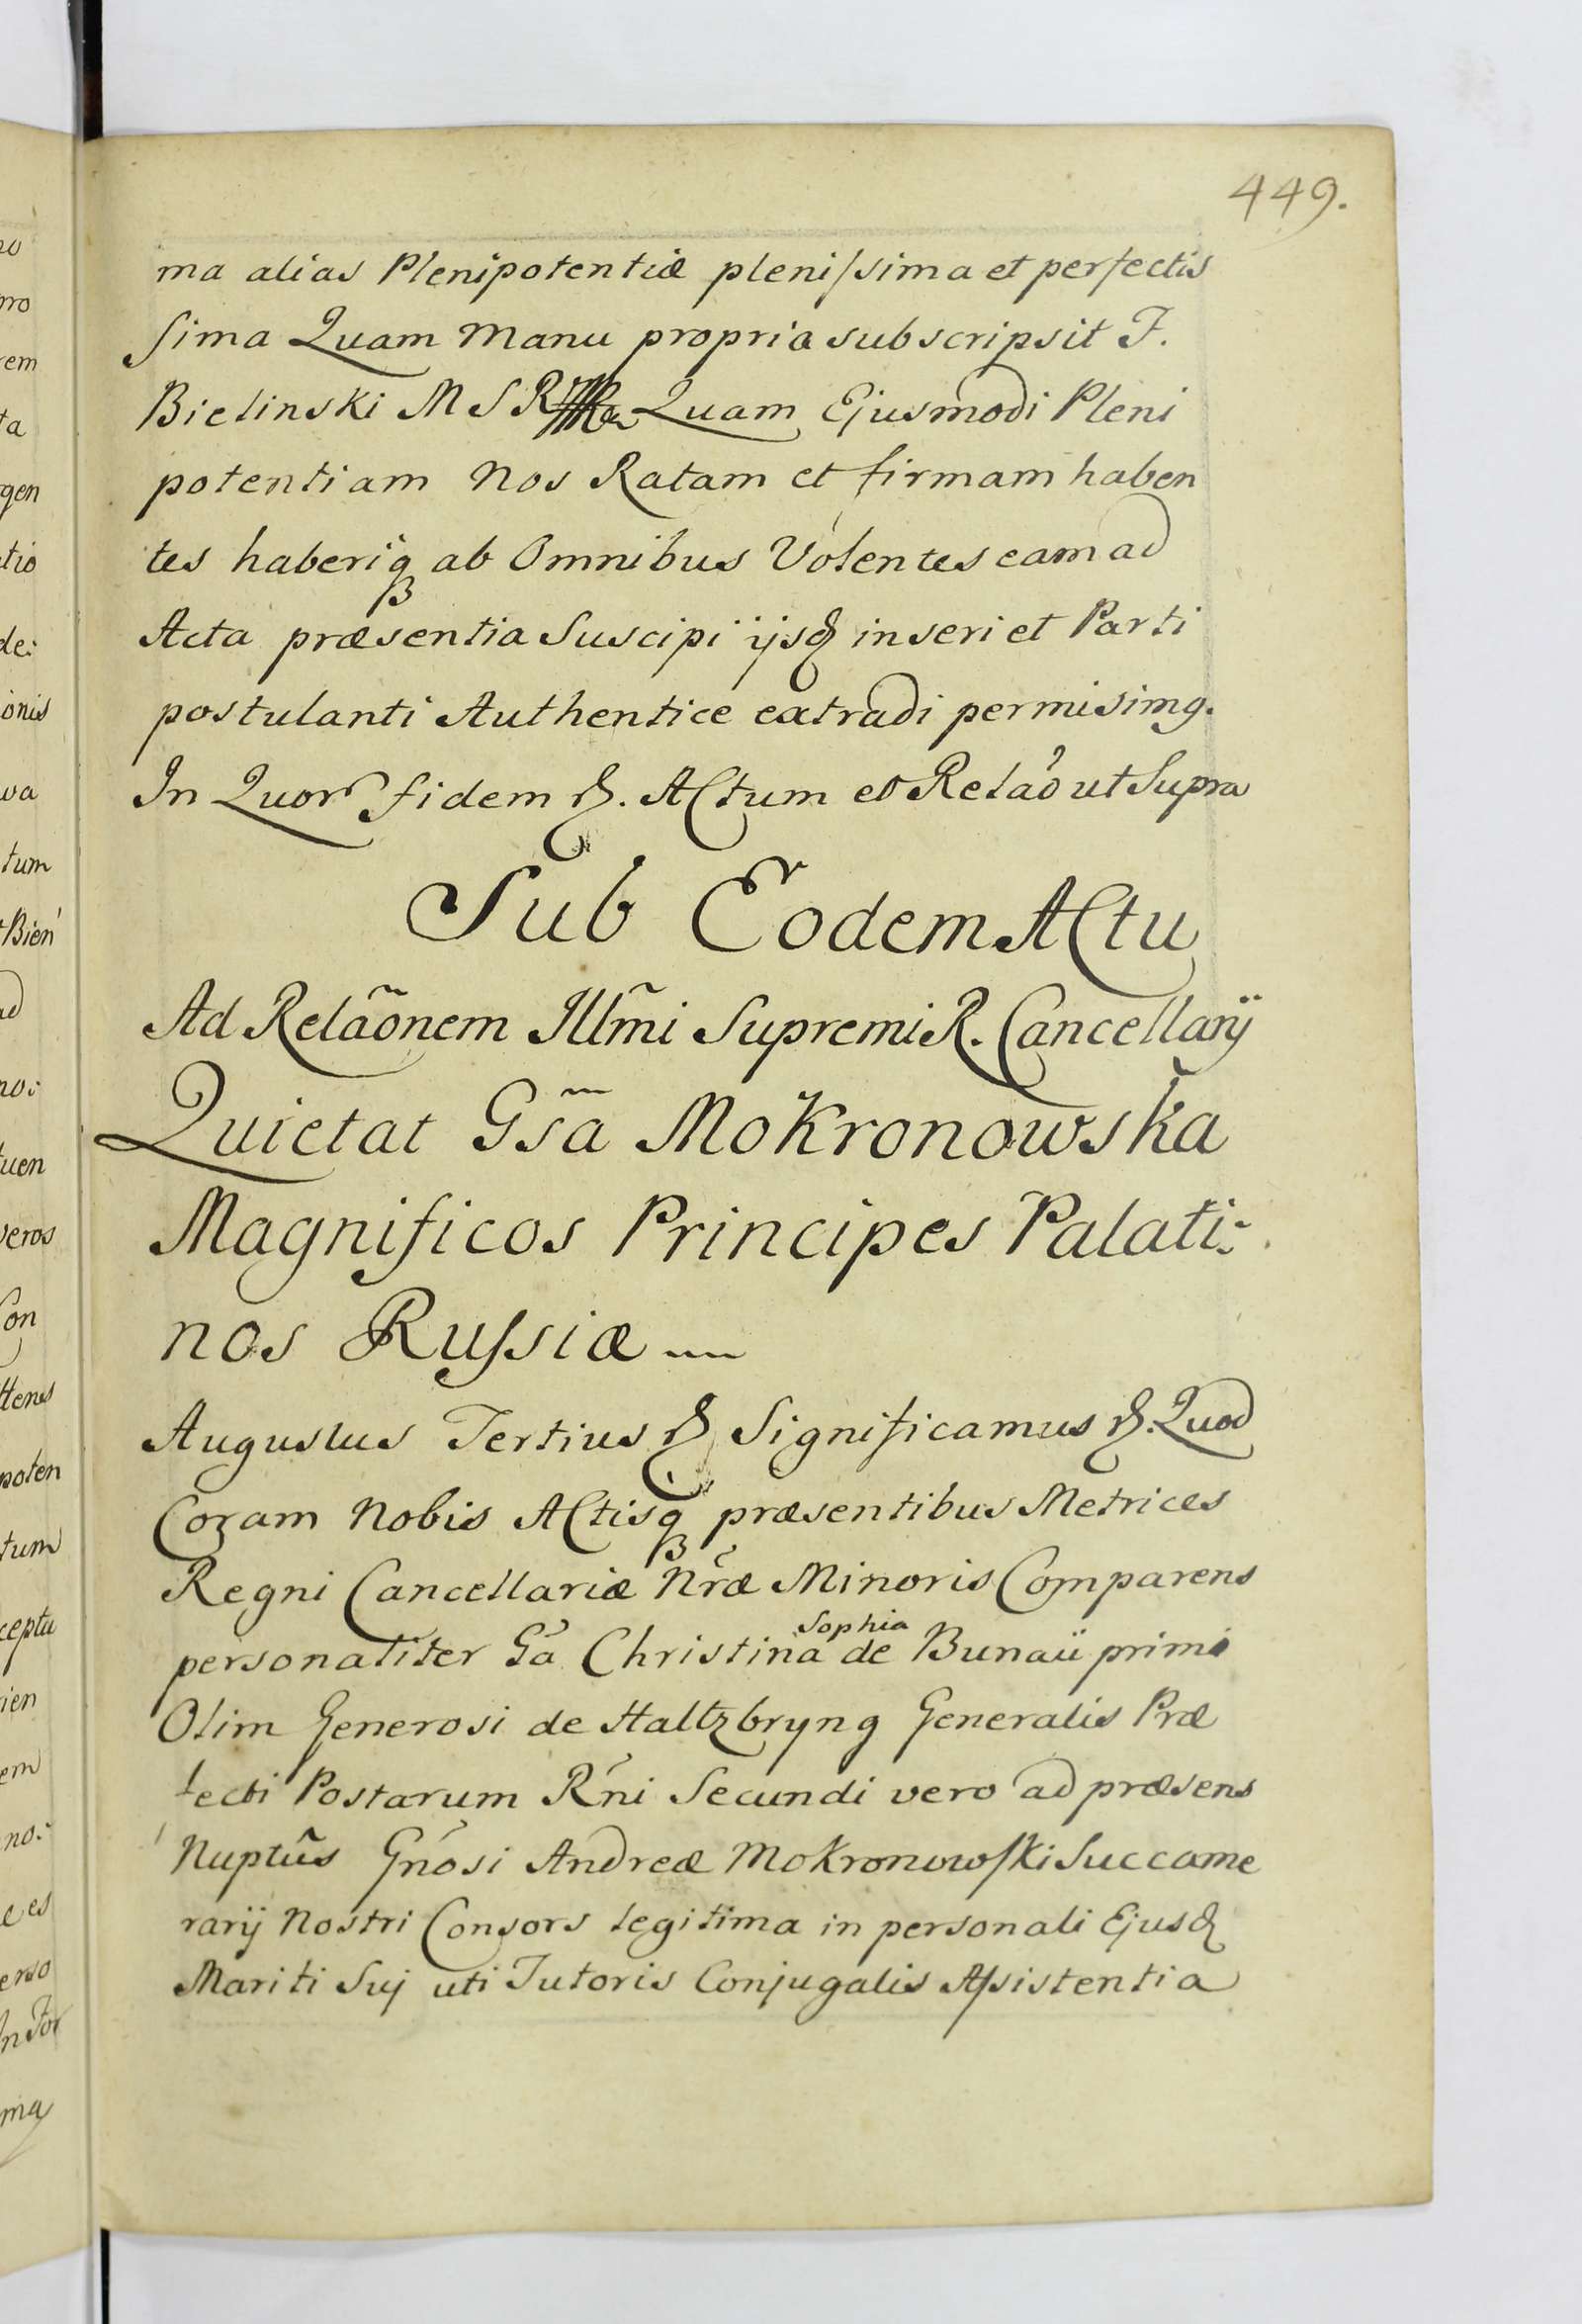 449.
ma alias Plenipotentiæ plenissima et perfectis
sima Quam Manu propria subscripsit F.
Bielinski M S R Quam Ejusmodi Pleni
potentiam Nos Ratam et firmam haben
tes haberiq̃ ab Omnibus Volentes eam ad
Acta præsentia Suscipi ijsq inseri et Parti
postulanti Authentice extradi permisimg.
In Quor fidem &. Actum et Relaõ ut Supra
Sub Eodem Actu
Ad Relaõnem Illm̃i Supremi R. Cancellarij
Quietat Gs̃a Mokronowska
Magnificos Principes Palati:
nos Russiæ
Augustus Tertius & Significamus &. Quod
Coram Nobis Actisq præsentibus Metrices
Regni Cancellariæ Nr̃æ Minoris Comparens
personaliter Ga Christina Sophia de Bunaü primi
Olim Generosi de Haltzbryng Generalis Præ
fecti Postarum R'ni Secundi vero ad præsens
Nuptũs Gnõsi Andreæ Mokronowski Succame
rarij Nostri Consors legitima in personali Ejusd
Mariti Sui uti Tutoris Conjugalis Assistentia